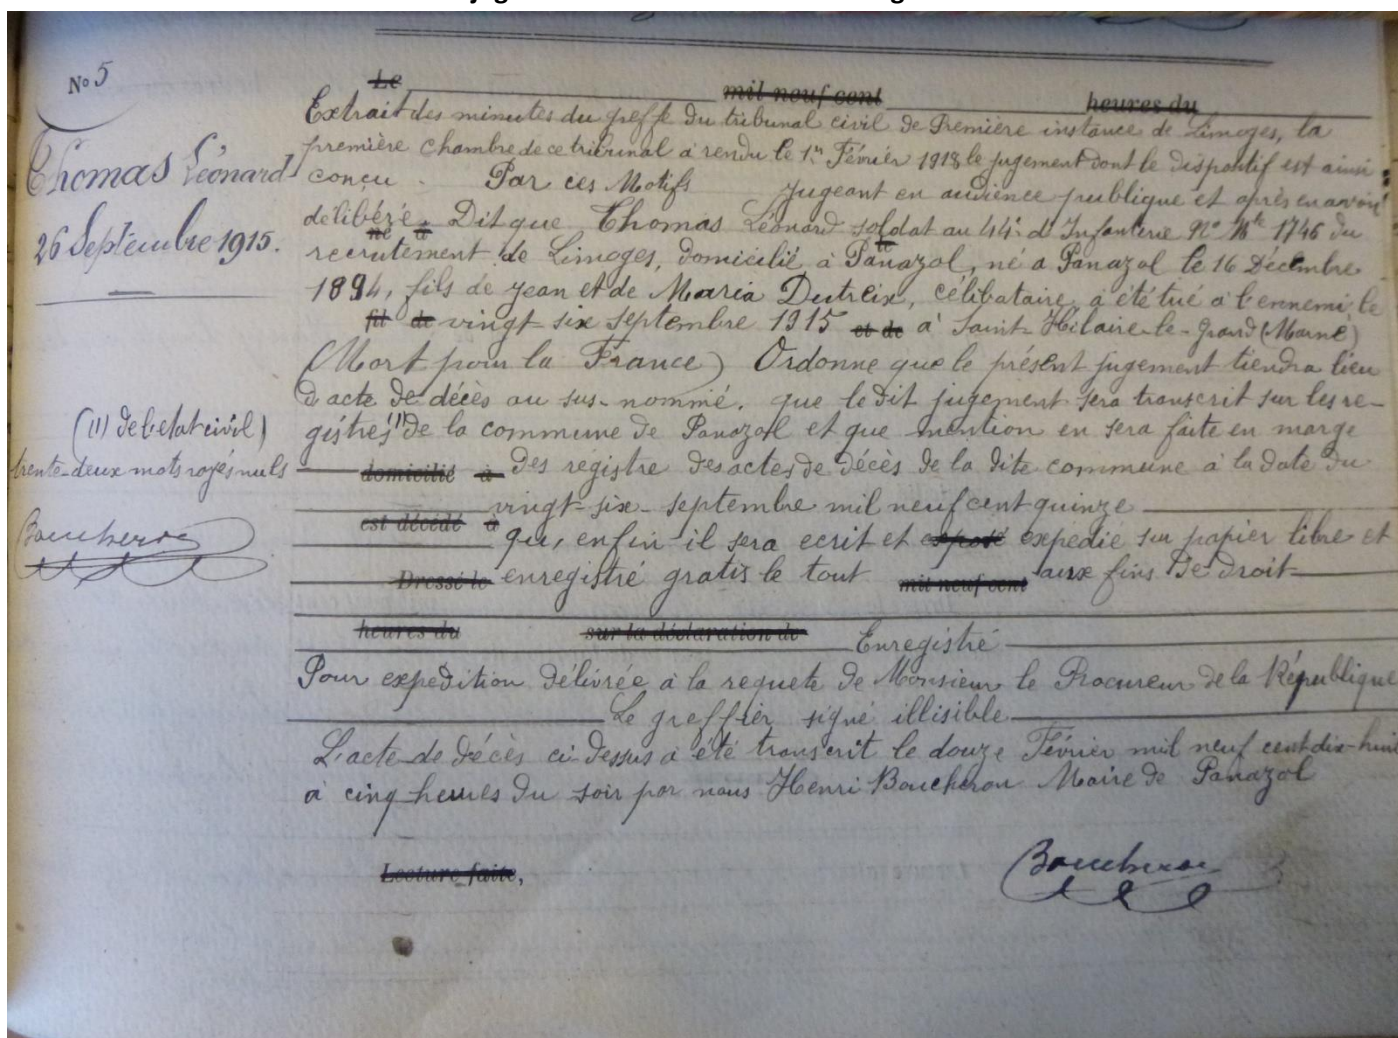 N° 5
Thomas Léonard
26 Septembre 1915.
(1) de l'etat civil)
trente-deux mots rayés nuls
Boucheron
Le mil neuf cent heures du
Extrait des minutes du greffe du tribunal civil de Première instance de Limoges, la
première chambre de ce tribunal a rendu le 1er Février 1918 le jugement dont le dispositif est ainsi
conçu. Par ces Motifs Jugeant en audience publique et après en avoir
délibéré. Dit que Thomas Léonard soldat au 44e d'Infanterie N° Mle 1746 du
né à le
recrutement de Limoges, domicilié à Panazol, né à Panazol le 16 Décembre
1894, fils de Jean et de Maria Dutreix, célibataire, a été tué à l'ennemi, le
fil de vingt-six septembre 1915 et de à Saint-Hilaire-le-Grand (Marne)
(Mort pour la France) Ordonne que le présent jugement tiendra lieu
d'acte de décès au sus-nommé, que le dit jugement sera transcrit sur les re-
gistres (1) de la commune de Panazol et que mention en sera faite en marge
domicilié à des registre des actes de décès de la dite commune à la date du
vingt-six septembre mil neuf cent quinze
est décédé à que, enfin il sera ecrit et exposé expedie sur papier libre et
Dressé le enregistré gratis le tout mil neuf cent aux fins de droit
heures du sur la déclaration de Enregistré
Pour expedition délivrée à la requete de Monsieur le Procureur de la République
Le greffier signé illisible
L'acte de décès ci-dessus a été transcrit le douze Février mil neuf cent dix-huit
à cinq heures du soir par nous Henri Boucheron Maire de Panazol
Lecture faite,
Boucheron